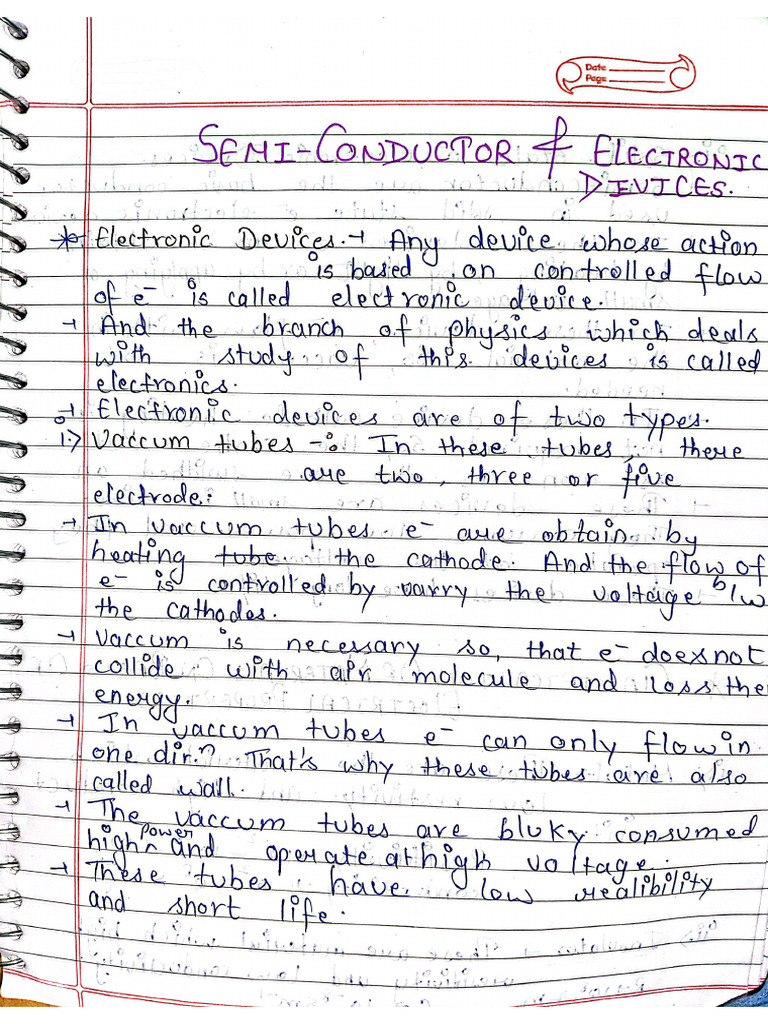 Date
Page
SEMI-CONDUCTOR & ELECTRONIC
DIVICES.
* Electronic Devices.→ Any device whose action
is based on controlled flow
of e⁻ is called electronic device.
→ And the branch of physics which deals
with study of this devices is called
electronics.
→ Electronic devices are of two types.
i> Vaccum tubes -: In these tubes, there
are two, three or five
electrode:
→ In vaccum tubes e⁻ are obtain by
heating tube the cathode. And the flow of
e⁻ is controlled by varry the voltage b/w
the cathodes.
→ vaccum is necessary so, that e⁻ doesnot
collide with air molecule and loss the
energy.
→ In vaccum tubes e⁻ can only flow in
one dirⁿ. That's why these tubes are also
called wall.
→ The vaccum tubes are bluky consumed
high power and operate at high voltage.
→ These tubes have low realibility
and short life.